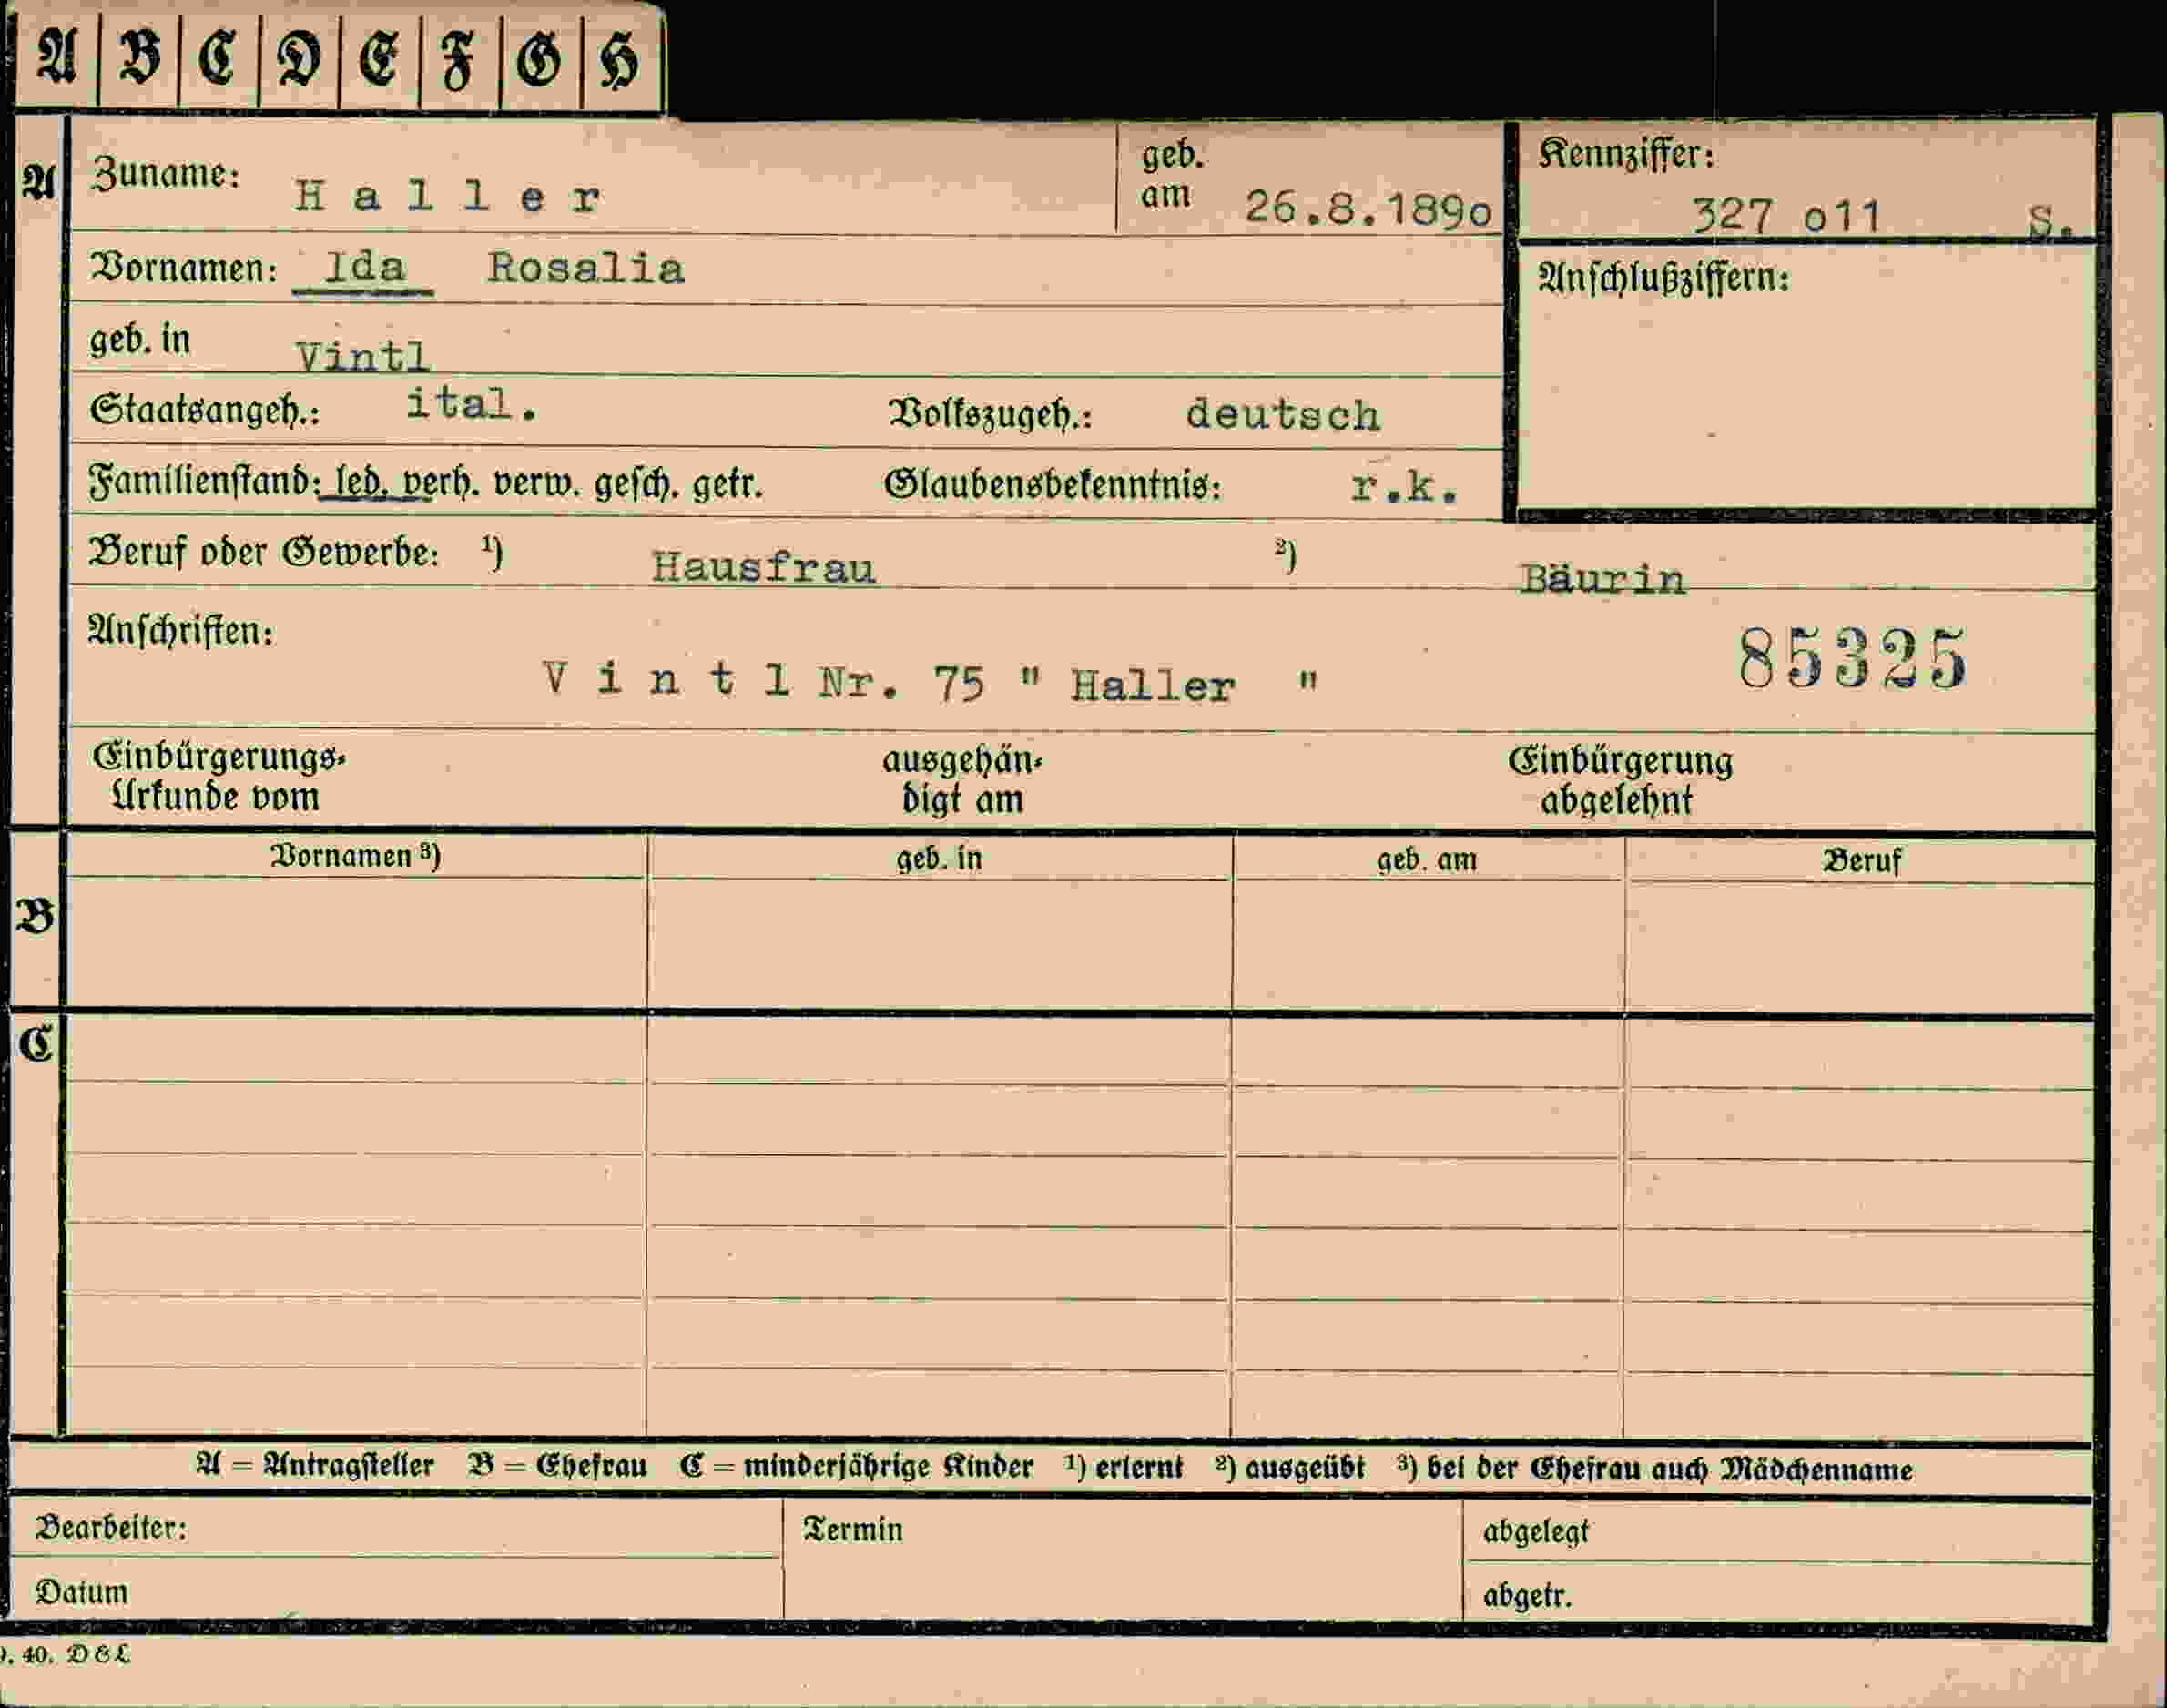 A B C D E F G H
A Zuname: Haller geb. am 26.8.189o Kennziffer: 327 o11 S.
Vornamen: Ida Rosalia Anschlußziffern:
geb. in Vintl
Staatsangeh.: ital. Volkszugeh.: deutsch
Familienstand: led. verh. verw. gesch. getr. Glaubensbekenntnis: r.k.
Beruf oder Gewerbe: ¹) Hausfrau ²) Bäurin
Anschriften:
Vintl Nr. 75 " Haller " 85325
Einbürgerungs- ausgehän- Einbürgerung
Urkunde vom digt am abgelehnt
Vornamen ³) geb. in geb. am Beruf
B
C
A = Antragsteller B = Ehefrau C = minderjährige Kinder ¹) erlernt ²) ausgeübt ³) bei der Ehefrau auch Mädchenname
Bearbeiter: Termin abgelegt
Datum abgetr.
40. D&L